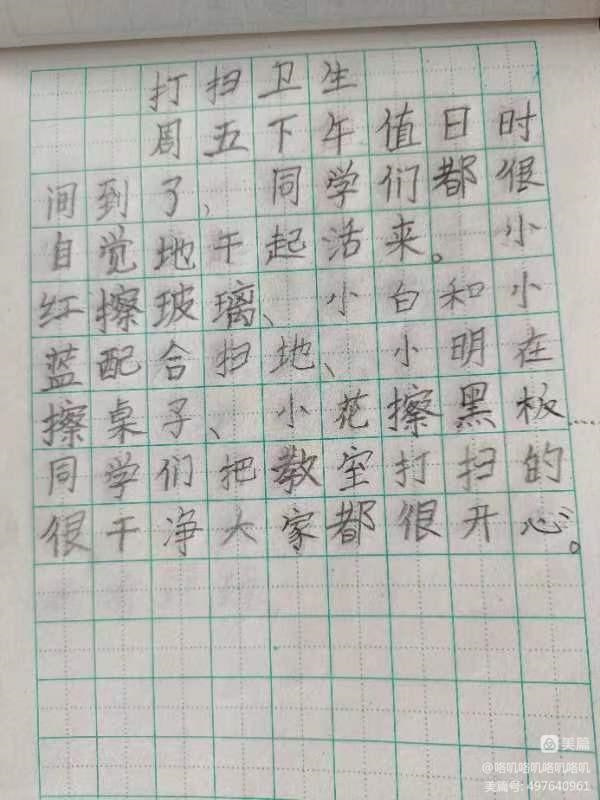 打扫卫生
周五下午值日时
间到了、同学们都很
自觉地干起活来。小
红擦玻璃、小白和小
蓝配合扫地、小明在
擦桌子、小花擦黑板
同学们把教室打扫的
很干净大家都很开心。
美篇
@咯叽咯叽咯叽咯叽
美篇号: 497640961